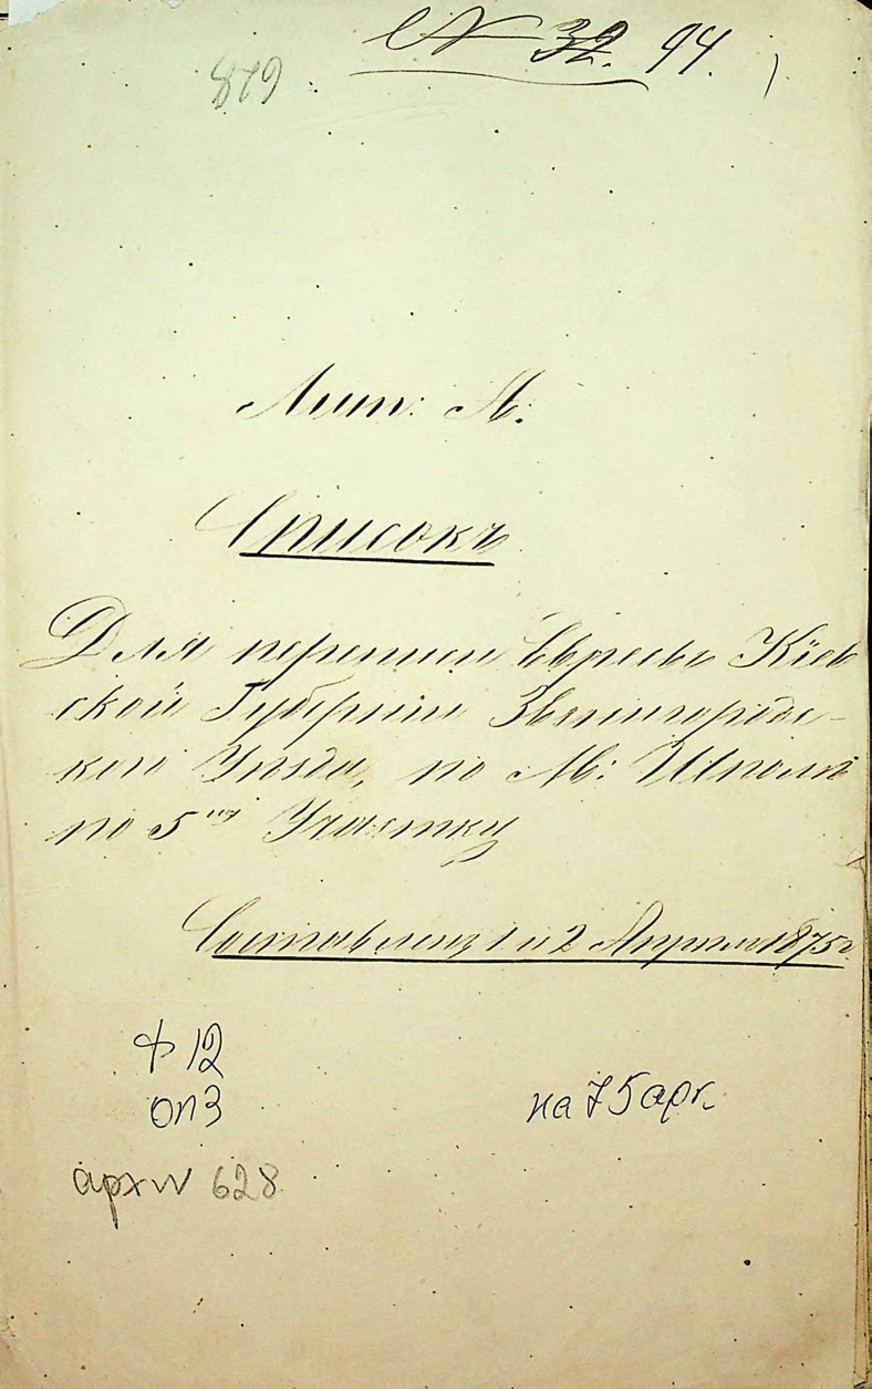 № 32. 94.
879
Лит: А.
Списокъ
Для переписи Евреевъ Кіев
ской Губерніи Звенигородс-
каго Уѣзда, по М: Шполѣ
по 5му Участку
Составленъ 1 и 2 Апрѣля 1875г.
ф 12
оп3
на 75 арк.
архив 628